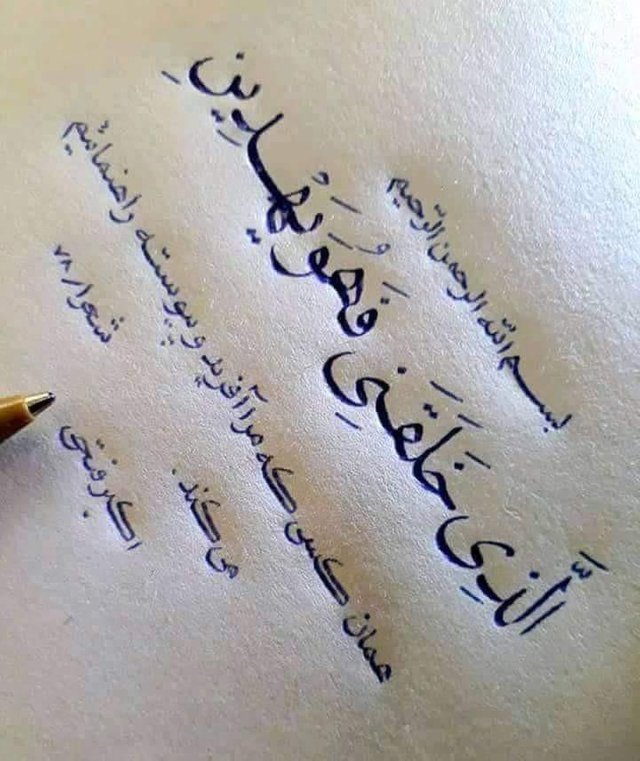 بسم الله الرحمن الرحیم
الَّذِی خَلَقَنِی فَهُوَ یَهْدِینِ
همان کسی که مرا آفرید و پیوسته راهنمائیم
می کند.
شعرا/۷۸
اکبر فتحی